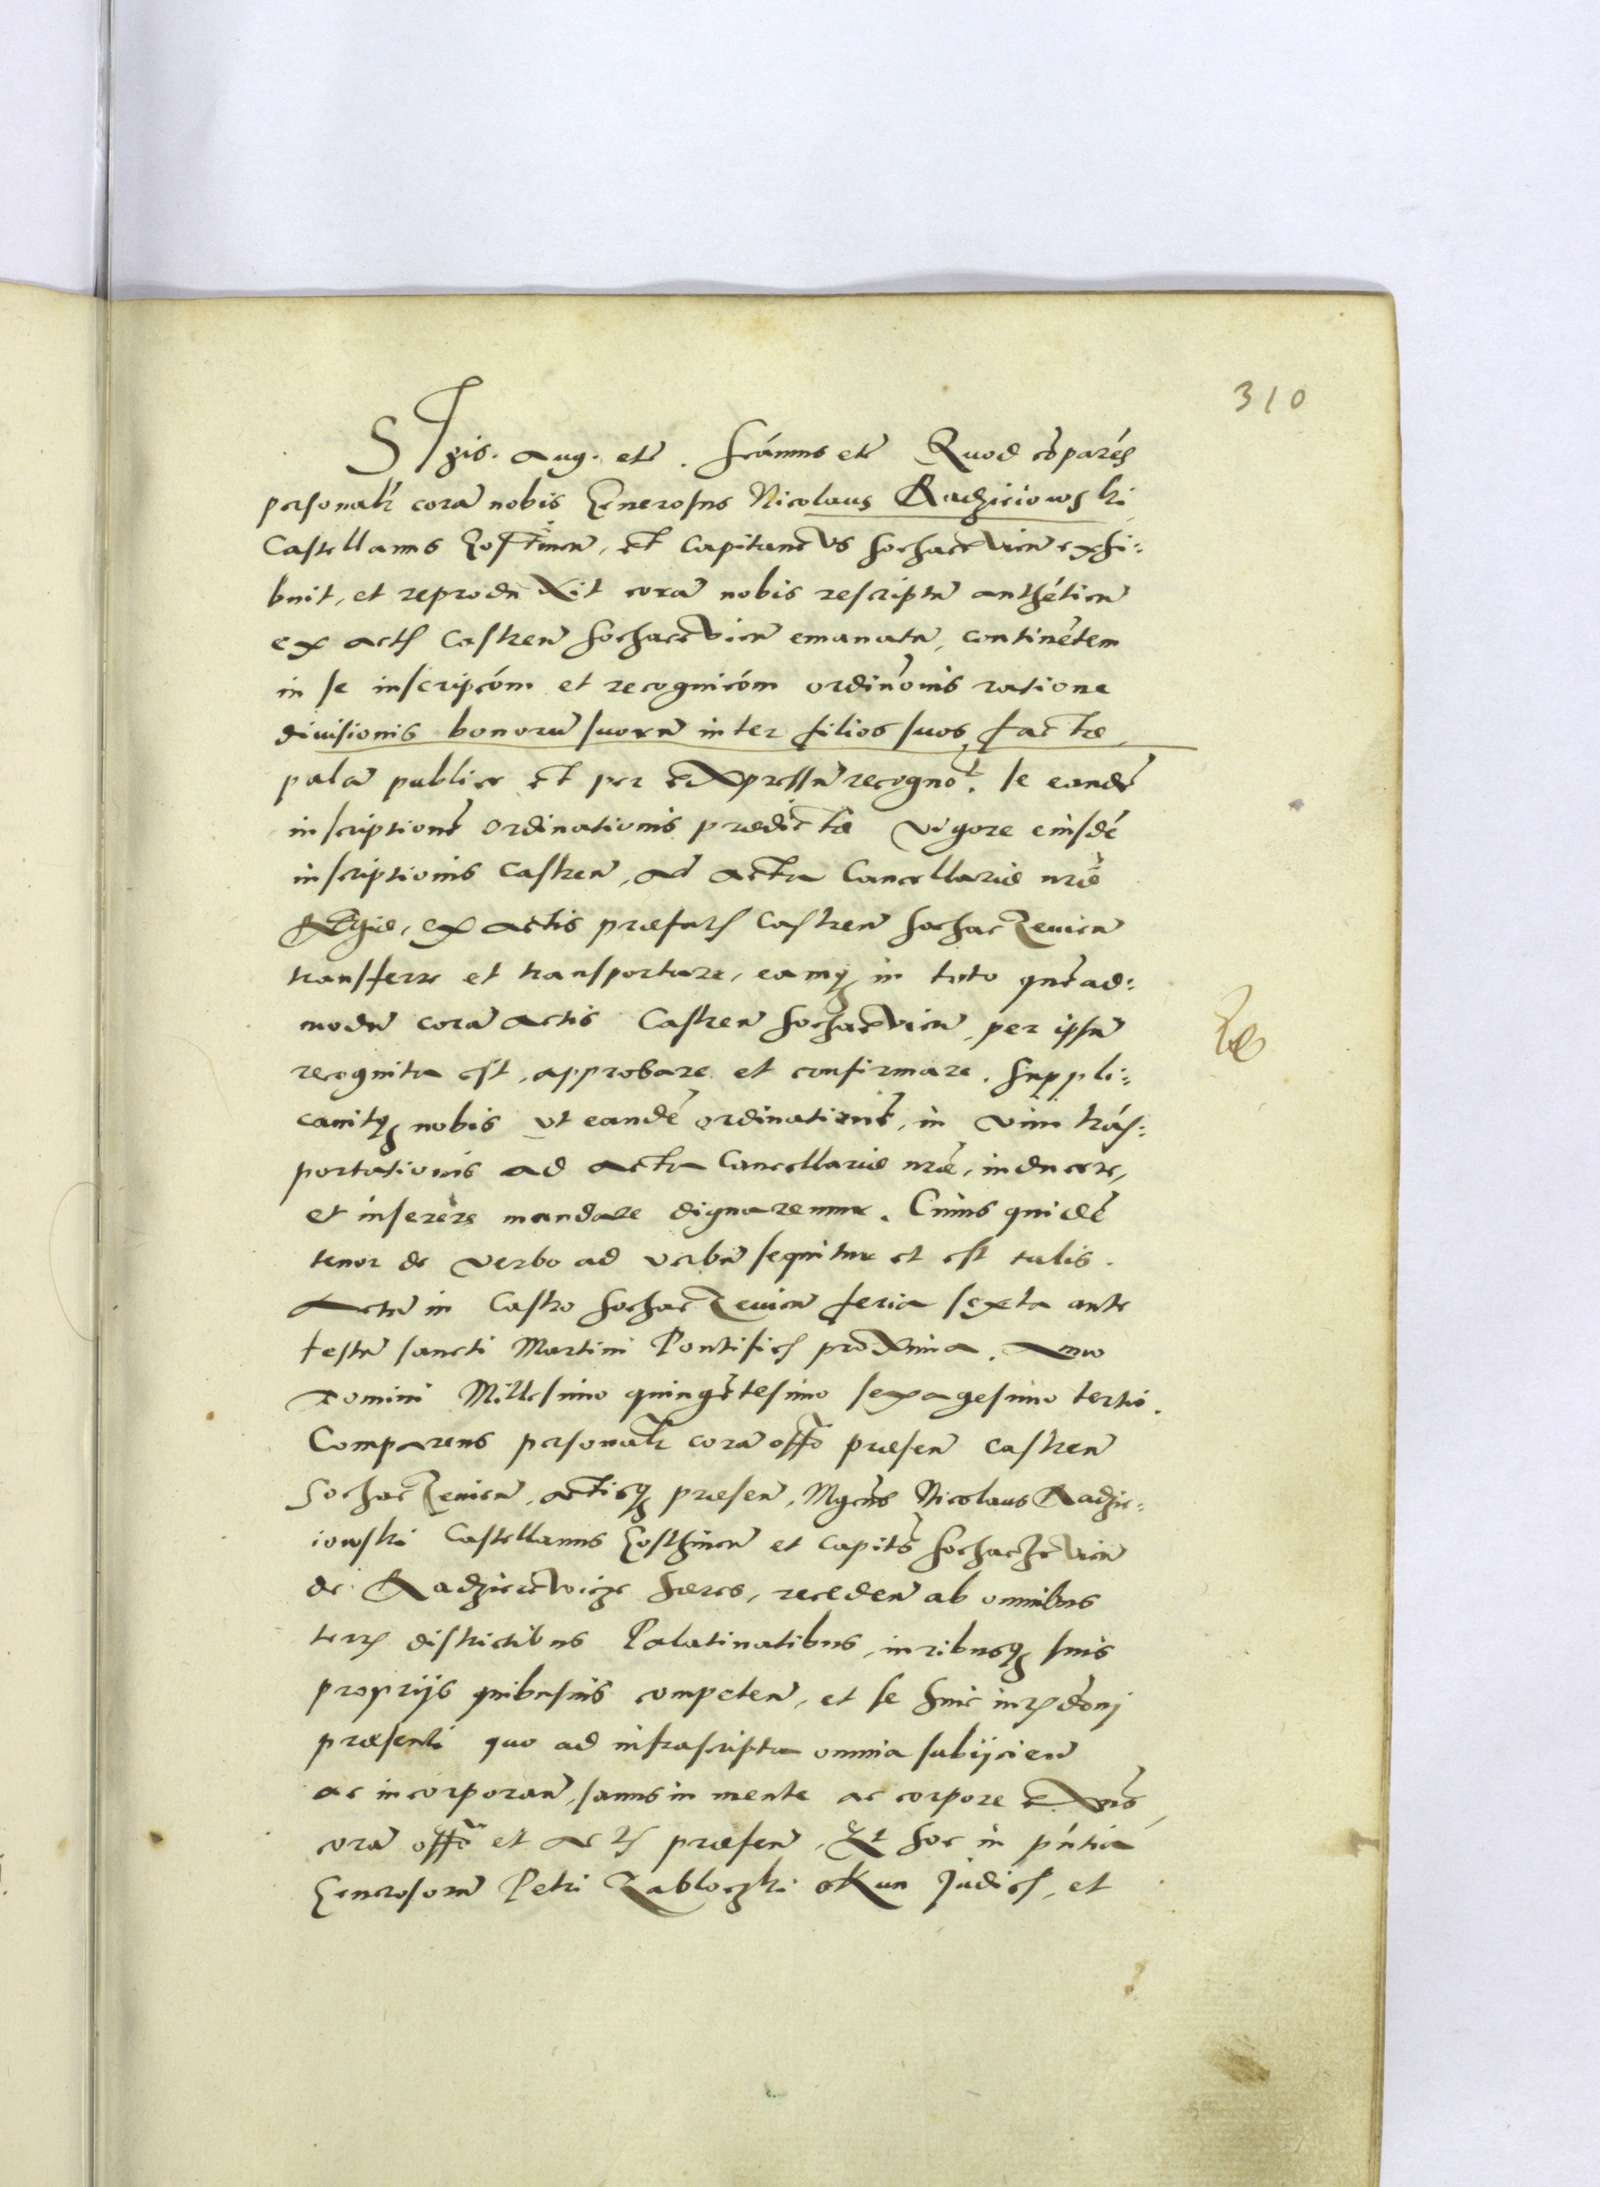 310
Sigis. Aug. etc. Fcámus etc Quod cõparẽs
personalr̃ corã nobis Generosus Nicolaus Radzieiowski
Castellanus Gostinen̄, et Capitaneus Sochaczevien̄ exhi=
buit, et reproduxit corã nobis rescriptũ authẽticũ
ex actis Castren̄ Sochaczevien̄ emanatũ, continẽtem
in se inscripcióm et recognicióm ordinõnis ratione
divisionis bonorũ suorũ inter filios suos factæ,
palã publice et per expressũ recognot. se eandẽ
inscriptionẽ ordinationis prædictæ vigore eiusdẽ
inscriptionis Castren̄, ad acta Cancellariæ nr̃æ
Regiæ, ex actis præfatis Castren̄ Sochaczevien̄
transferre et transportare, eamq; in toto quẽad=
modũ corã actis Castren̄ Sochacevien̄, per ipsũ
recognita est, approbare et confirmare. Suppli=
cavitq; nobis ut eandẽ ordinationẽ, in vim trãs=
portationis ad acta Cancellariæ nr̃æ, inducere,
et inserere mandare dignaremur. Cuius quidẽ
tenor de verbo ad verbũ sequitur et est talis.
Actũ in Castro Sochaczevien̄ feria sexta ante
festũ sancti Martini Pontificis proxima. Anno
Domini Millesimo quingẽtesimo sexagesimo tertio.
Comparens personalr̃ corã offõ præsen̄ castren̄
Sochaczevien̄, actisq; præsen̄, Mgcũs Nicolaus Radzie=
iowski Castellanus Gosthinen̄ et Capitũs Sochaczevien̄
de Radzieiewicze hæres, receden̄ ab omnibus
terris districtibus Palatinatibus, iuribusq; suis
proprijs quibusuis competen̄, et se huic iurisdõni
præsenti quo ad infrascripta omnia subijcien̄
ac incorporan̄, sanus in mente ac corpore exñs
corã offõ et actis præsen̄, Et hoc in pñtia
Generosorũ Petri Zabloczki Judicis, et